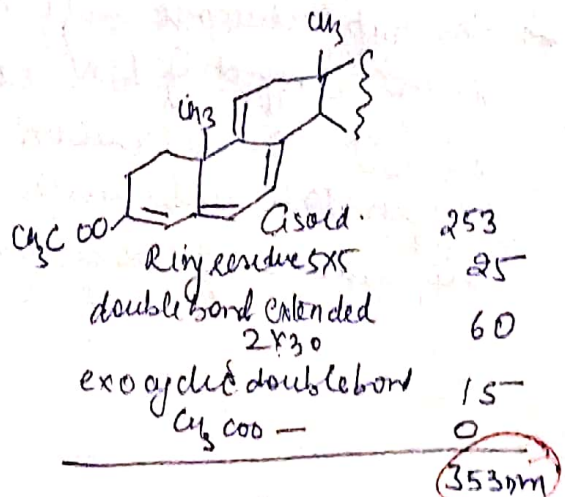 CH3
CH3
CH3C OO
Cisoid. 253
Ring residue 5x5 25
double bond extended 60
2x30
exocyclic double bond 15
CH3 COO — 0
353nm